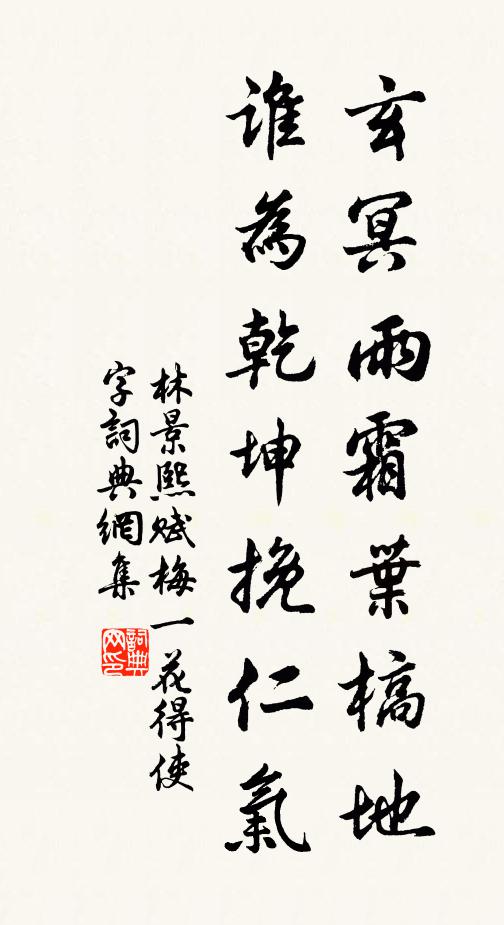 玄冥雨霜葉槁地
誰為乾坤挽仁氣
林景熙賦梅一花得使
字詞典網集
詞典網印